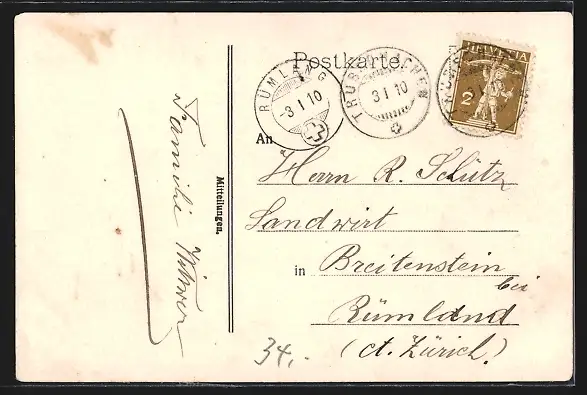 Postkarte.
RÜMLANG
-3 I 10
TRUBSCHACHEN
3 I 10
HELVETIA
2
An
Herrn R. Schütz
Landwirt
in Breitenstein
bei
Rümland
(ct. Zürich.)
Mitteilungen.
Familie Wittwer
34.